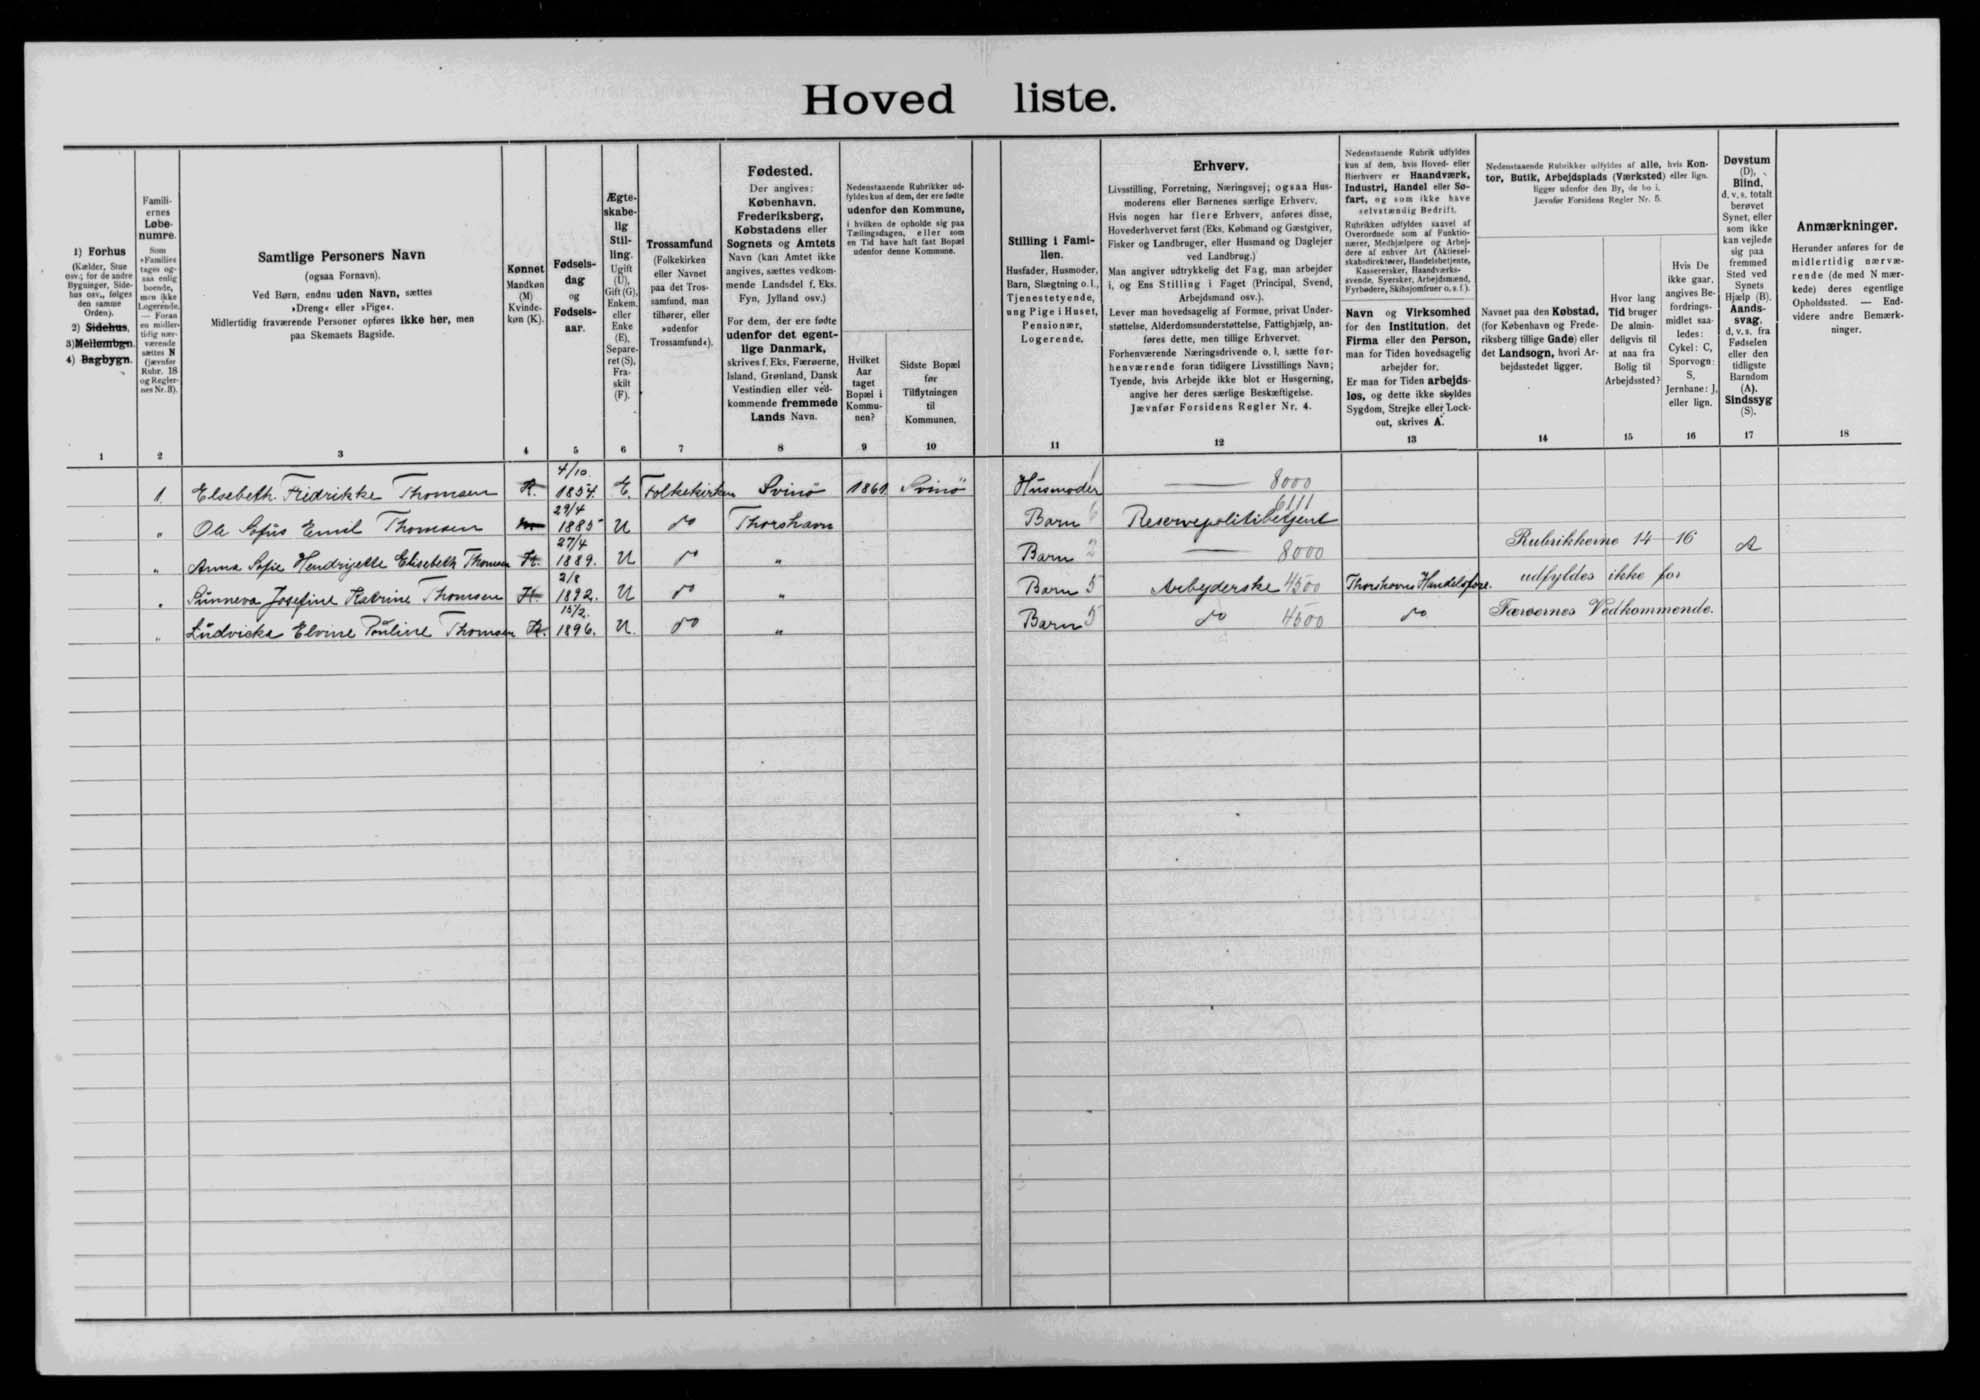 Hoved liste.
1) Forhus
(Kælder, Stue
osv.; for de andre
Bygninger, Side-
hus osv., følges
den samme
Orden).
2) Sidehus,
3) Mellembgn.
4) Bagbygn.
1
Famili-
ernes
Løbe-
numre.
Som
»Familie«
tages og-
saa enlig
boende,
men ikke
Logerende.
— Foran
en midler-
tidig nær-
værende
sættes N
(jævnfør
Rubr. 18
og Regler-
nes Nr. 3).
2
Samtlige Personers Navn
(ogsaa Fornavn).
Ved Børn, endnu uden Navn, sættes
»Dreng« eller »Pige«.
Midlertidig fraværende Personer opføres ikke her, men
paa Skemaets Bagside.
3
Kønnet
Mandkøn
(M)
Kvinde-
køn (K).
4
Fødsels-
dag
og
Fødsels-
aar.
5
Ægte-
skabe-
lig
Stil-
ling.
Ugift
(U),
Gift (G),
Enkem.
eller
Enke
(E),
Separe-
ret (S),
Fra-
skilt
(F).
6
Trossamfund
(Folkekirken
eller Navnet
paa det Tros-
samfund, man
tilhører, eller
»udenfor
Trossamfund«).
7
Fødested.
Der angives:
København,
Frederiksberg,
Købstadens eller
Sognets og Amtets
Navn (kan Amtet ikke
angives, sættes vedkom-
mende Landsdel f. Eks.
Fyn, Jylland osv.)
For dem, der ere fødte
udenfor det egent-
lige Danmark,
skrives f. Eks. Færøerne,
Island, Grønland, Dansk
Vestindien eller ved-
kommende fremmede
Lands Navn.
8
Nedenstaaende Rubrikker ud-
fyldes kun af dem, der ere fødte
udenfor den Kommune,
i hvilken de opholde sig paa
Tællingsdagen, eller som
en Tid have haft fast Bopæl
udenfor denne Kommune.
Hvilket
Aar
taget
Bopæl i
Kommu-
nen?
9
Sidste Bopæl
før
Tilflytningen
til
Kommunen.
10
Stilling i Fami-
lien.
Husfader, Husmoder,
Barn, Slægtning o. l.,
Tjenestetyende,
ung Pige i Huset,
Pensionær,
Logerende.
11
Erhverv.
Livsstilling, Forretning, Næringsvej; ogsaa Hus-
moderens eller Børnenes særlige Erhverv.
Hvis nogen har flere Erhverv, anføres disse,
Hovederhvervet først (Eks. Købmand og Gæstgiver,
Fisker og Landbruger, eller Husmand og Daglejer
ved Landbrug.)
Man angiver udtrykkelig det Fag, man arbejder
i, og Ens Stilling i Faget (Principal, Svend,
Arbejdsmand osv.).
Lever man hovedsagelig af Formue, privat Under-
støttelse, Alderdomsunderstøttelse, Fattighjælp, an-
føres dette, men tillige Erhvervet.
Forhenværende Næringsdrivende o. l. sætte for-
henværende foran tidligere Livsstillings Navn;
Tyende, hvis Arbejde ikke blot er Husgerning,
angive her deres særlige Beskæftigelse.
Jævnfør Forsidens Regler Nr. 4.
12
Nedenstaaende Rubrik udfyldes
kun af dem, hvis Hoved- eller
Bierhverv er Haandværk,
Industri, Handel eller Sø-
fart, og som ikke have
selvstændig Bedrift.
Rubrikken udfyldes saavel af
Overordnede som af Funktio-
nærer, Medhjælpere og Arbej-
dere af enhver Art (Aktiesel-
skabsdirektører, Handelsbetjente,
Kasserersker, Haandværks-
svende, Syersker, Arbejdsmænd,
Fyrbødere, Skibsjomfruer o. s. f.).
Navn og Virksomhed
for den Institution, det
Firma eller den Person,
man for Tiden hovedsagelig
arbejder for.
Er man for Tiden arbejds-
løs, og dette ikke skyldes
Sygdom, Strejke eller Lock-
out, skrives A.
13
Nedenstaaende Rubrikker udfyldes af alle, hvis Kon-
tor, Butik, Arbejdsplads (Værksted) eller lign.
ligger udenfor den By, de bo i.
Jævnfør Forsidens Regler Nr. 5.
Navnet paa den Købstad,
(for København og Frede-
riksberg tillige Gade) eller
det Landsogn, hvori Ar-
bejdsstedet ligger.
14
Hvor lang
Tid bruger
De almin-
deligvis til
at naa fra
Bolig til
Arbejdssted?
15
Hvis De
ikke gaar,
angives Be-
fordrings-
midlet saa-
ledes:
Cykel: C,
Sporvogn:
S,
Jernbane: J,
eller lign.
16
Døvstum
(D),
Blind,
d. v. s. totalt
berøvet
Synet, eller
som ikke
kan vejlede
sig paa
fremmed
Sted ved
Synets
Hjælp (B).
Aands-
svag,
d. v. s. fra
Fødselen
eller den
tidligste
Barndom
(A).
Sindssyg
(S).
17
Anmærkninger.
Herunder anføres for de
midlertidig nærvæ-
rende (de med N mær-
kede) deres egentlige
Opholdssted. — End-
videre andre Bemærk-
ninger.
18
1. Elsebeth Fredrikke Thomsen K. 4/10. 1854. E. Folkekirken Svinö 1861 Svinö Husmoder 1 8000
" Ole Sofus Emil Thomsen 29/4 1885 U do Thorshavn Barn 6 Reservepolitibetjent 6111
" Anna Sofie Hendrijette Elisebeth Thomsen K. 27/4 1889. U do " Barn 2 8000 Rubrikkerne 14-16 A
" Sunneva Josefine Katrine Thomsen K. 2/8 1892. U do " Barn 5 Arbejderske 4500 Thorshavns Handelsfore. udfyldes ikke for
" Ludvicka Elvine Pouline Thomsen K. 15/2. 1896. U. do " Barn 5 do 4500 do Færøernes Vedkommende.